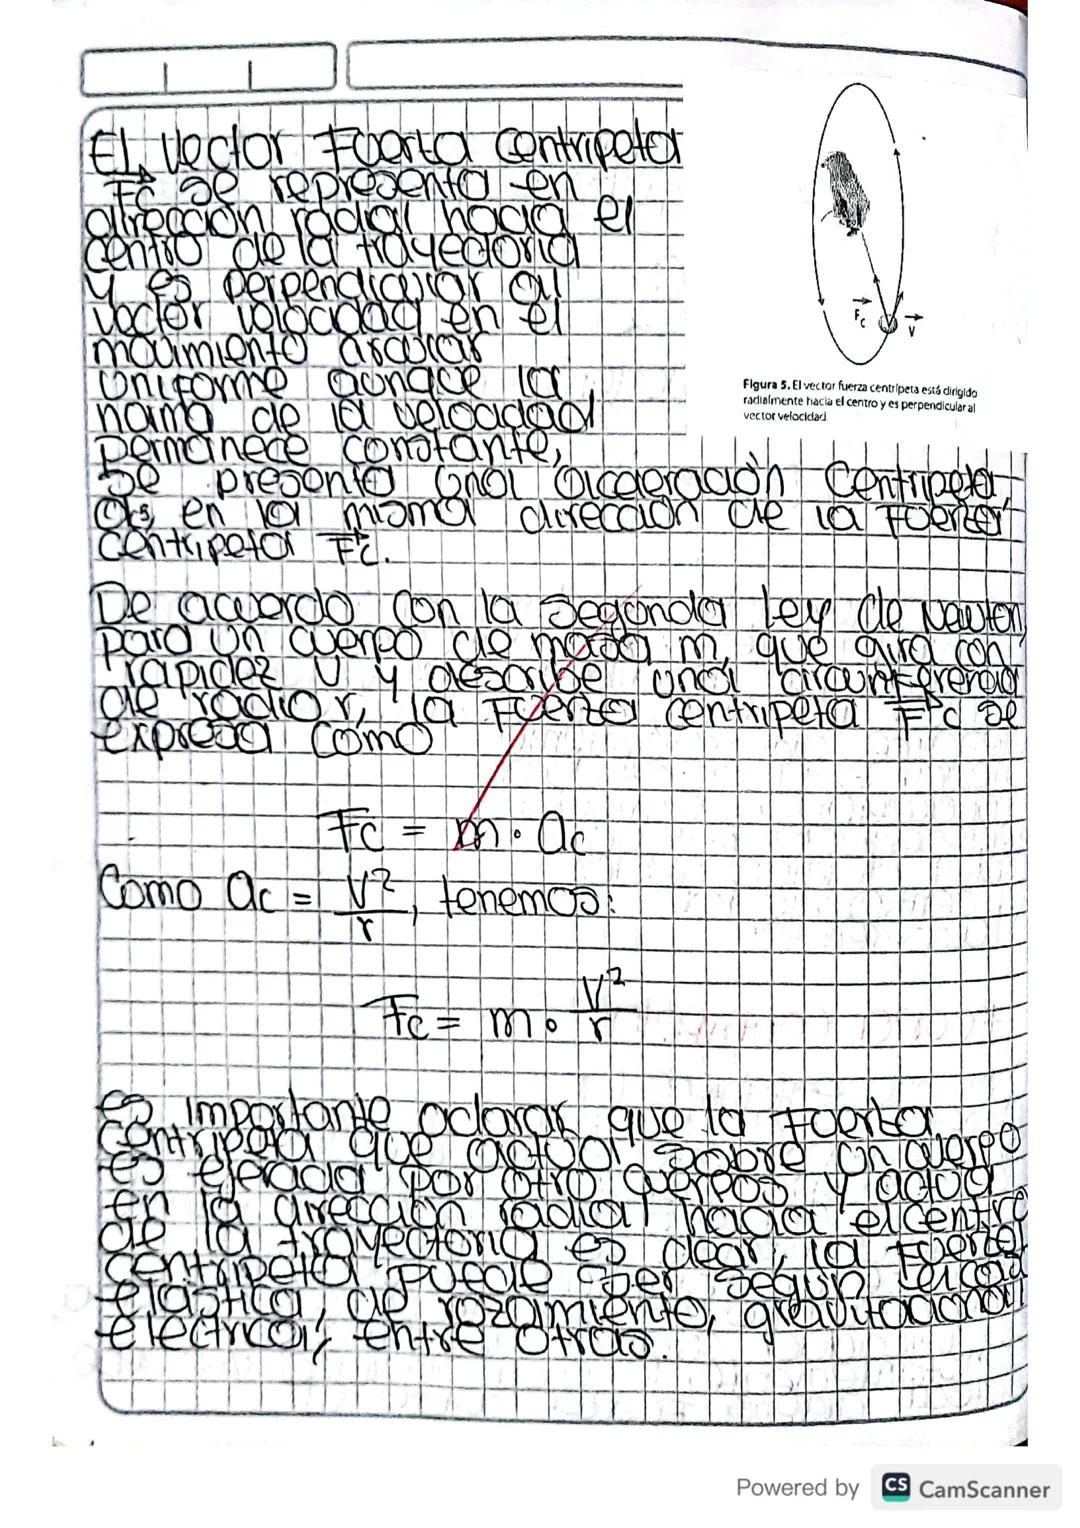 El vector Fuerza centripeta
Fc se representa en
dirección radial hacia el
centro de la trayectoria
y es perpendicular al
vector velocidad en el
movimiento circular
uniforme aunque la
norma de la velocidad
permanece constante,
Se presenta una aceleración centripeta,
en la misma dirección de la Fuerza
centripeta Fc.
De acuerdo con la segunda Ley de Newton
para un cuerpo de masa m, que gira con
rapidez v y describe una circunferencia
de radio r, la Fuerza centripeta Fc se
expresa como
Fc = m · ac
Como ac = v²/r, tenemos:
Fc = m · v²/r
Es importante aclarar que la Fuerza
centripeta que actua sobre un cuerpo
es ejercida por otro cuerpos y actua
en la dirección radial hacia el centro
de la trayectoria es decir, la Fuerza
centripeta puede ser segun
elastica, de rozamiento, gravitacional
electrica, entre otras.
Fc
v
Figura 5. El vector fuerza centrípeta está dirigido
radialmente hacia el centro y es perpendicular al
vector velocidad.
Powered by CS CamScanner